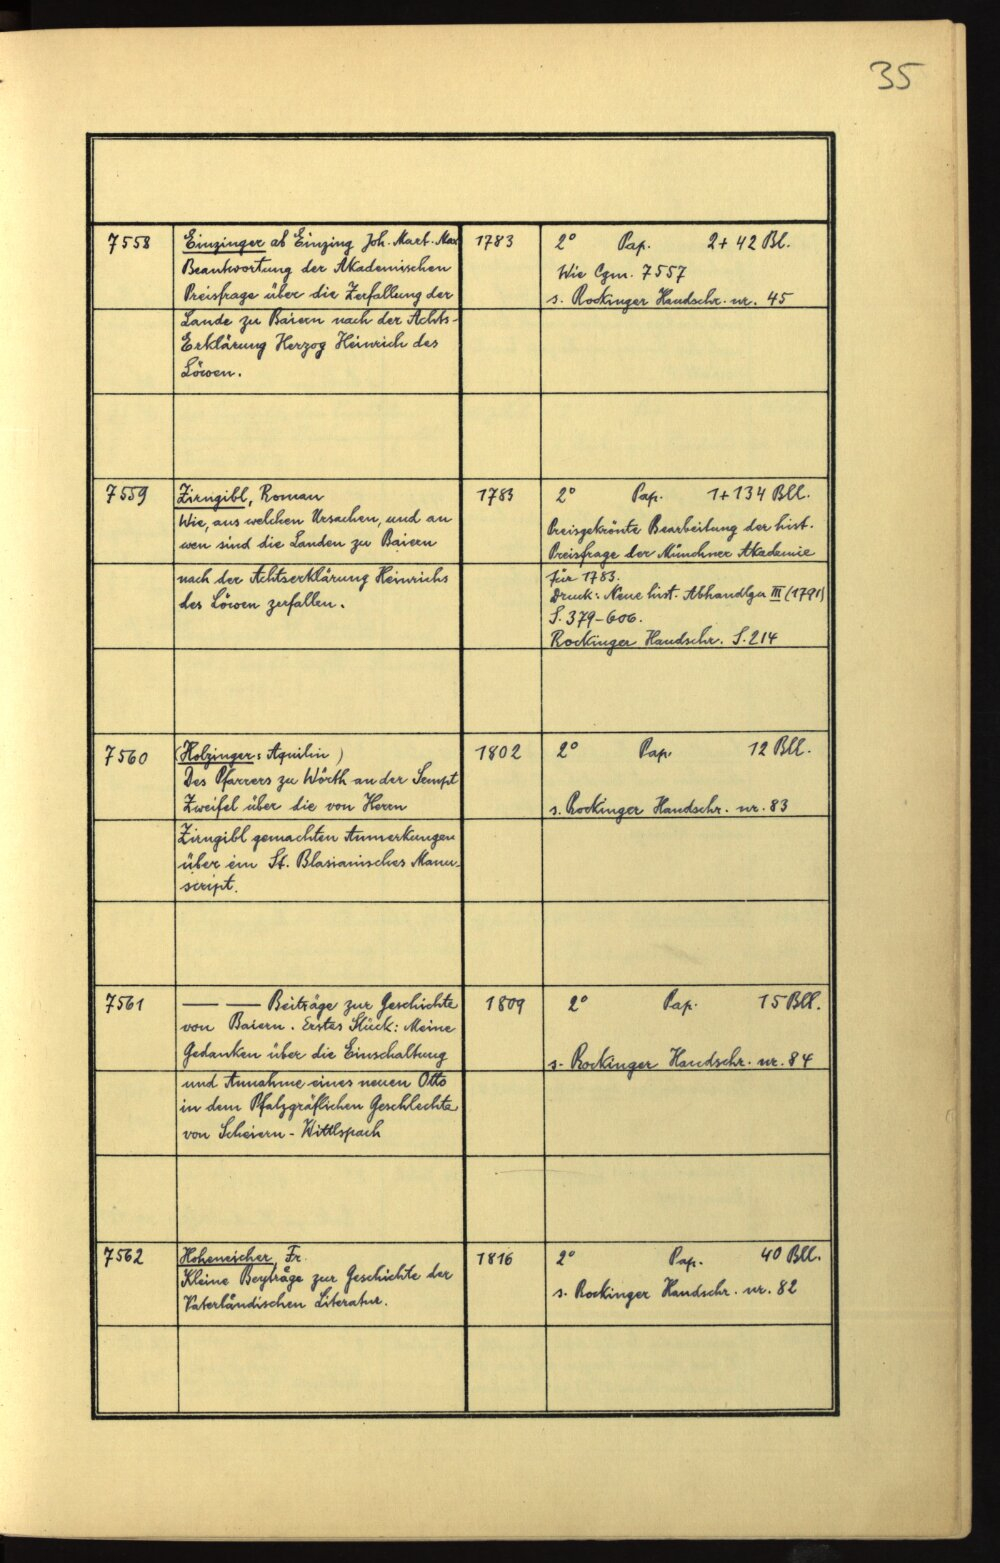 35
7558 Einzinger ab Einzing Joh. Mart. Max 1783 2° Pap. 2+42 Bl.
Beantwortung der Akademischen Wie Cgm. 7557
Preisfrage über die Zerfallung der s. Rockinger Handschr. nr. 45
Lande zu Baiern nach der Achts-
Erklärung Herzog Heinrich des
Löwen.
7559 Zirngibl, Roman 1783 2° Pap. 1+134 Bll.
Wie, aus welchen Ursachen, und an Preisgekrönte Bearbeitung der hist.
wen sind die Landen zu Baiern Preisfrage der Münchner Akademie
nach der Achtserklärung Heinrichs für 1783.
des Löwen zerfallen. Druck: Neue hist. Abhandlgn III (1791)
S. 379-606.
Rockinger Handschr. S. 214
7560 (Holzinger: Aquilin) 1802 2° Pap. 12 Bll.
Des Pfarrers zu Wörth an der Sempt
Zweifel über die von Herrn s. Rockinger Handschr. nr. 83
Zirngibl gemachten Anmerkungen
über ein St. Blasianisches Manu-
script.
7561 — — Beiträge zur Geschichte 1809 2° Pap. 15 Bll.
von Baiern. Erstes Stück: Meine
Gedanken über die Einschaltung s. Rockinger Handschr. nr. 84
und Annahme eines neuen Otto
in dem Pfalzgräflichen Geschlechte
von Scheiern - Wittlspach
7562 Hoheneicher, Fr. 1816 2° Pap. 40 Bll.
Kleine Beyträge zur Geschichte der s. Rockinger Handschr. nr. 82
Vaterländischen Literatur.